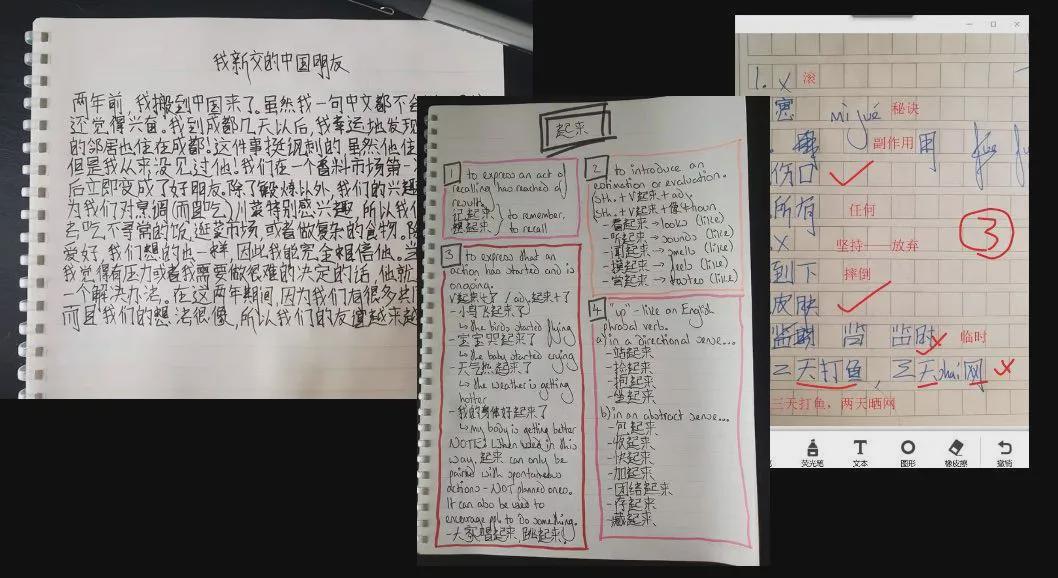 我新交的中国朋友
两年前,我搬到中国来了。虽然我一句中文都不会
还觉得兴奋。我到成都几天以后,我幸运地发现
的邻居也住在成都!这件事挺讽刺的,虽然他住
但是我从来没见过他!我们在一个香料市场第一
后立即变成了好朋友。除了锻炼以外,我们的兴趣
为我们对烹调(而且吃)川菜特别感兴趣,所以我们
去吃不寻常的饭,逛菜市场,或者做复杂的食物。除
爱好,我们想的也一样,因此我能完全相信他。当
我觉得有压力或者我需要做很难的决定的话,他就
一个解决办法。在这两年期间,因为我们有很多共同
而且我们的想法很像,所以我们的友谊越来越
起来
1 to express an act of
recalling has reached a
result.
记起来 } to remember,
想起来 } to recall
2 to introduce an
estimation or evaluation.
(sth. + V起来 + adj.
(sth. + V起来 + 像 + noun
- 看起来 → looks (like)
- 听起来 → sounds (like)
- 闻起来 → smells (like)
- 摸起来 → feels (like)
- 尝起来 → tastes (like)
3 to express that an
action has started and is
ongoing.
V起来+了 / adj.起来+了
- 小鸟飞起来了
↳ the birds started flying
- 宝宝哭起来了
↳ the baby started crying
- 天气热起来了
↳ the weather is getting
hotter
- 我的身体好起来了
↳ my body is getting better
NOTE! When used in this
way, 起来 can only be
paired with spontaneous
actions - NOT planned ones.
It can also be used to
encourage ppl. to do something.
- 大家唱起来,跳起来!
4 "up" - like an English
phrasal verb.
a) in a directional sense...
- 站起来
- 捡起来
- 抱起来
- 坐起来
b) in an abstract sense...
- 包起来
- 收起来
- 快起来
- 加起来
- 团结起来
- 存起来
- 藏起来
1. x 滚
mì jué 秘诀
副作用 用
伤口
所有 任何
x 坚持——放弃
3
到下 摔倒
皮肤
临时
三天打鱼,三天shai网 x
三天打鱼,两天晒网
荧光笔 文本 图形 橡皮擦 撤销